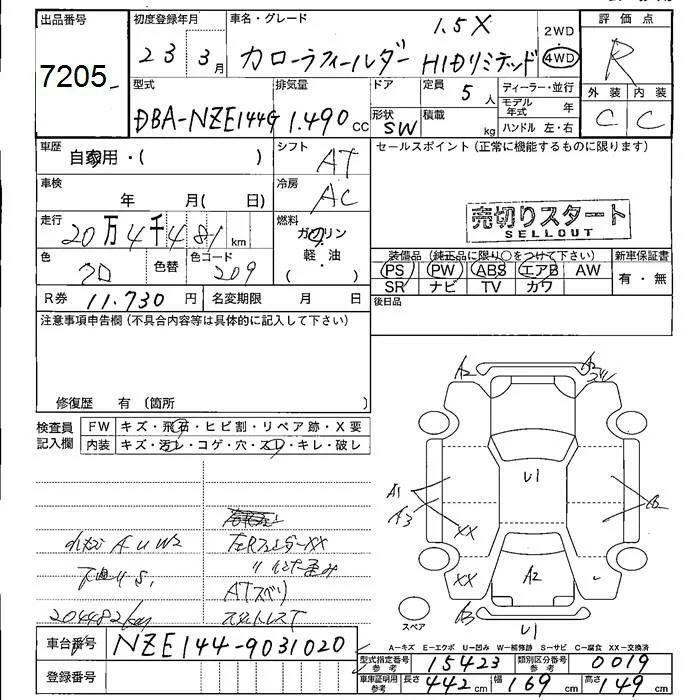 出品番号
7205
初度登録年月
23 3月
車名・グレード
1.5X
カローラフィールダー HIDリミテッド
2WD
4WD
評価点
R
外装 内装
C C
型式
DBA-NZE144G
排気量
1.490cc
ドア
形状
SW
定員
5人
積載
kg
ディーラー・並行
モデル年式 年
ハンドル 左・右
車歴
自家用・( )
シフト
AT
車検
年 月( 日)
冷房
AC
走行
20万4千481km
燃料
ガソリン
・
軽・油
( )
色
クロ
色替
色コード
209
R券 11.730円
名変期限 月 日
セールスポイント(正常に機能するものに限ります)
売切りスタート
SELLOUT
装備品(純正品に限り○をつけて下さい)
PS PW ABS エアB AW
SR ナビ TV カワ
新車保証書
有・無
後日品
注意事項申告欄(不具合内容等は具体的に記入して下さい)
修復歴 有(箇所 )
検査員記入欄
FW キズ・飛石・ヒビ割・リペア跡・X要
内装 キズ・汚レ・コゲ・穴・スレ・キレ・破レ
A U W2
下廻りS,
204482km
左Rフェンダー XX
ATスベリ
スタットレスT
A2
U1
A1
A3
XX
XX
A2
U1
スペア
A-キズ E-エクボ U-凹み W-補修跡 S-サビ C-腐食 XX-交換済
車台番号
NZE144-9031020
登録番号
型式指定番号 参考
15423
類別区分番号 参考
0019
車庫証明用 参考
長さ 442cm
幅 169cm
高さ 149cm